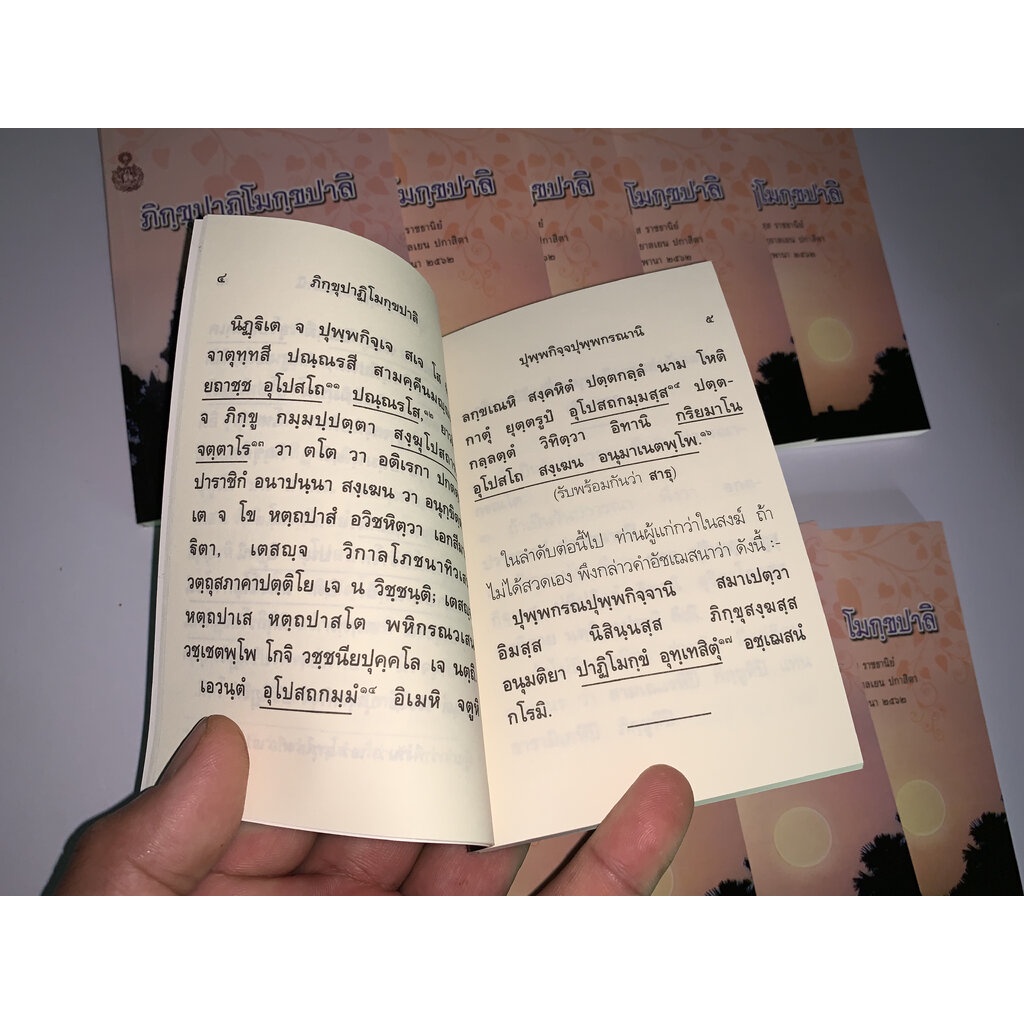 ภิกฺขุปาฏิโมกฺขปาลิ
โมกฺขปาลิ
กฺขปาลิ
โมกฺขปาลิ
โมกฺขปาลิ
ราชธานีย์
ปกาสิตา
๒๕๖๒
ราชธานีย์
ปกาสิตา
พานา ๒๕๖๒
ราชธานีย์
ปกาสิตา
พานา ๒๕๖๒
๔
ภิกฺขุปาฏิโมกฺขปาลิ
นิฏฺฐิเต จ ปุพฺพกิจฺเจ สเจ โส
จาตุทฺทสี ปณฺณรสี สามคฺคีนมญฺ
ยถาชฺช อุโปสโถ๑๑ ปณฺณรโส,๑๒
จ ภิกฺขู กมฺมปฺปตฺตา สงฺฆุโปสถา
จตฺตาโร๑๓ วา ตโต วา อติเรกา ปกต
ปาราชิกํ อนาปนฺนา สงฺเฆน วา อนุกฺขิตฺ
เต จ โข หตฺถปาสํ อวิชหิตฺวา เอกสีม
ฐิตา, เตสญฺจ วิกาลโภชนาทิวเส
วตฺถุสภาคาปตฺติโย เจ น วิชฺชนฺติ; เตสญฺ
หตฺถปาเส หตฺถปาสโต พหิกรณวเสน
วชฺเชตพฺโพ โกจิ วชฺชนียปุคฺคโล เจ นตฺถิ
เอวนฺตํ อุโปสถกมฺมํ๑๔ อิเมหิ จตูหิ
๕
ปุพฺพกิจฺจปุพฺพกรณานิ
ลกฺขเณหิ สงฺคหิตํ ปตฺตกลฺลํ นาม โหติ
กาตุํ ยุตฺตรูปํ อุโปสถกมฺมสฺส๑๔ ปตฺต-
กลฺลตฺตํ วิทิตฺวา อิทานิ กริยมาโน
อุโปสโถ สงฺเฆน อนุมาเนตพฺโพ.๑๖
(รับพร้อมกันว่า สาธุ)
ในลำดับต่อนี้ไป ท่านผู้แก่กว่าในสงฆ์ ถ้า
ไม่ได้สวดเอง พึงกล่าวคำอัชเฌสนาว่า ดังนี้ :-
ปุพฺพกรณปุพฺพกิจฺจานิ สมาเปตฺวา
อิมสฺส นิสินฺนสฺส ภิกฺขุสงฺฆสฺส
อนุมติยา ปาฏิโมกฺขํ อุทฺเทสิตุํ๑๗ อชฺเฌสนํ
กโรมิ.
โมกฺขปาลิ
ราชธานีย์
ปกาสิตา
๒๕๖๒